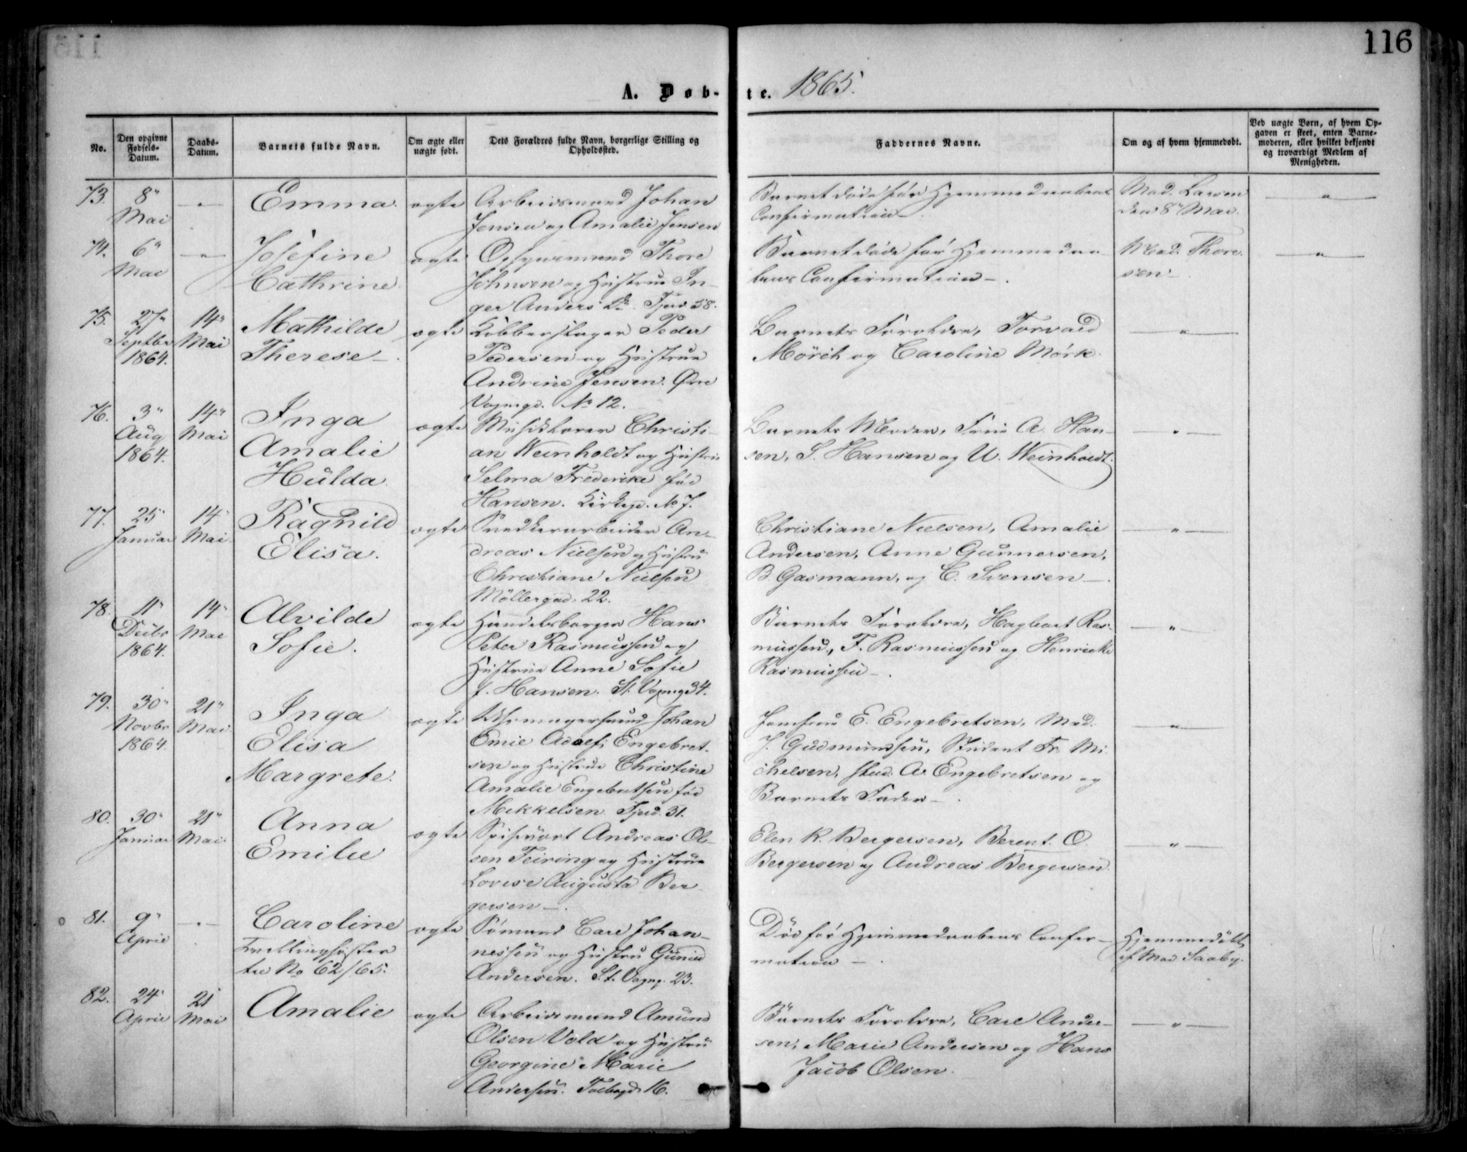 116
A. Døb-te. 1865.
No.
Den opgivne Fødsels-Datum.
Daabs-Datum.
Barnets fulde Navn.
Om ægte eller uægte født.
Dets Forældres fulde Navn, borgerlige Stilling og Opholdssted.
Faddernes Navne.
Om og af hvem hjemmedøbt.
Ved uægte Børn, af hvem Opgaven er skeet, enten Barnemoderen, eller hvilket bekjendt og troværdigt Medlem af Menigheden.
73. 8" Mai — " — Emma ægte
Arbeidsmand Johan
Jensen og Amalie Jensen
Barnet døde før Hjemmedaabens
Confirmation.
Mad. Larsen
den 8" Mai.
— " —
74. 6" Mai — " — Josefine
Cathrine ægte
Thore
Johnsen og Hustrue In-
ger Anders D. Tjud. 58.
Barnet døde før Hjemmedaa-
bens Confirmation —.
Mad. Thore-
sen
— " —
75. 27" Septbr 1864. 14" Mai
Mathilde
Therese —. ægte
Kobberslager Peder
Pedersen og Hustrue
Andrine Jensen. Øvre
Vogngd. No 12.
Barnets Forældre, Torvald
Mörch og Caroline Mörk.
— " —
76. 3" Aug 1864. 14" Mai
Inga
Amalie
Hulda ægte
Christi-
an Weinholdt og Hustru
Selma Frederikke fød
Hansen. Kirkegd. No 7.
Barnets Moder, A. Han-
sen, S. Hansen og U. Weinholdt.
— " —
77. 25" Januar 14" Mai.
Ragnild
Elisa. ægte
Snedkerarbeider An-
dreas Nielsen og Hustru
Christiane Nielsen
Møllergd. 22.
Christiane Nielsen, Amalie
Andersen, Anne Gunnersen,
B. Gasmann, og C. Svensen —.
— " —
78. 11" Decbr 1864. 14" Mai
Alvilde
Sofie. ægte
Handelsborger Hans
Peter Rasmussen og
Hustrue Anne Sofie
f. Hansen. St. Vogngd 34.
Barnets Forældre, Hagbart Ras-
mussen, F. Rasmussen og Henrikke
Rasmussen —.
— " —
79. 30" Novbr 1864. 21" Mai
Inga
Elisa
Margrete. ægte
Uhrmagersvend Johan
Emil Adolf Engebret-
sen og Hustrue Christine
Amalie Engebretsen fød
Mikkelsen. Tjud. 31.
Jomfru E. Engebretsen, Mad.
J. Gudmundsen, Student Fr. Mi-
chelsen, stud. A. Engebretsen og
Barnets Fader —.
— " —
80. 30" Januar 21" Mai
Anna
Emilie ægte
Spisevært Andreas Ol-
sen Teiring og Hustrue
Lovise Augusta Ber-
gersen —.
Elen K. Bergersen, Berent O.
Bergersen og Andreas Bergersen.
— " —
81. 9" April — " —
Caroline
Tvillingsøster
til No 62/65. ægte
Sømand Carl Johan-
nessen og Hustru Gunild
Andersen. St. Vogng. 23.
Død før Hjemmedaabens Confir-
mation —.
Hjemmedøbt
af Mad. Saaby.
82. 24" April 21 Mai
Amalie ægte
Arbeidsmand Amund
Olsen Vold og Hustru
Georgine Marie
Andersen. Tolbogd. 16.
Barnets Forældre, Carl Ander-
sen, Marie Andersen og Hans
Jacob Olsen.
— " —